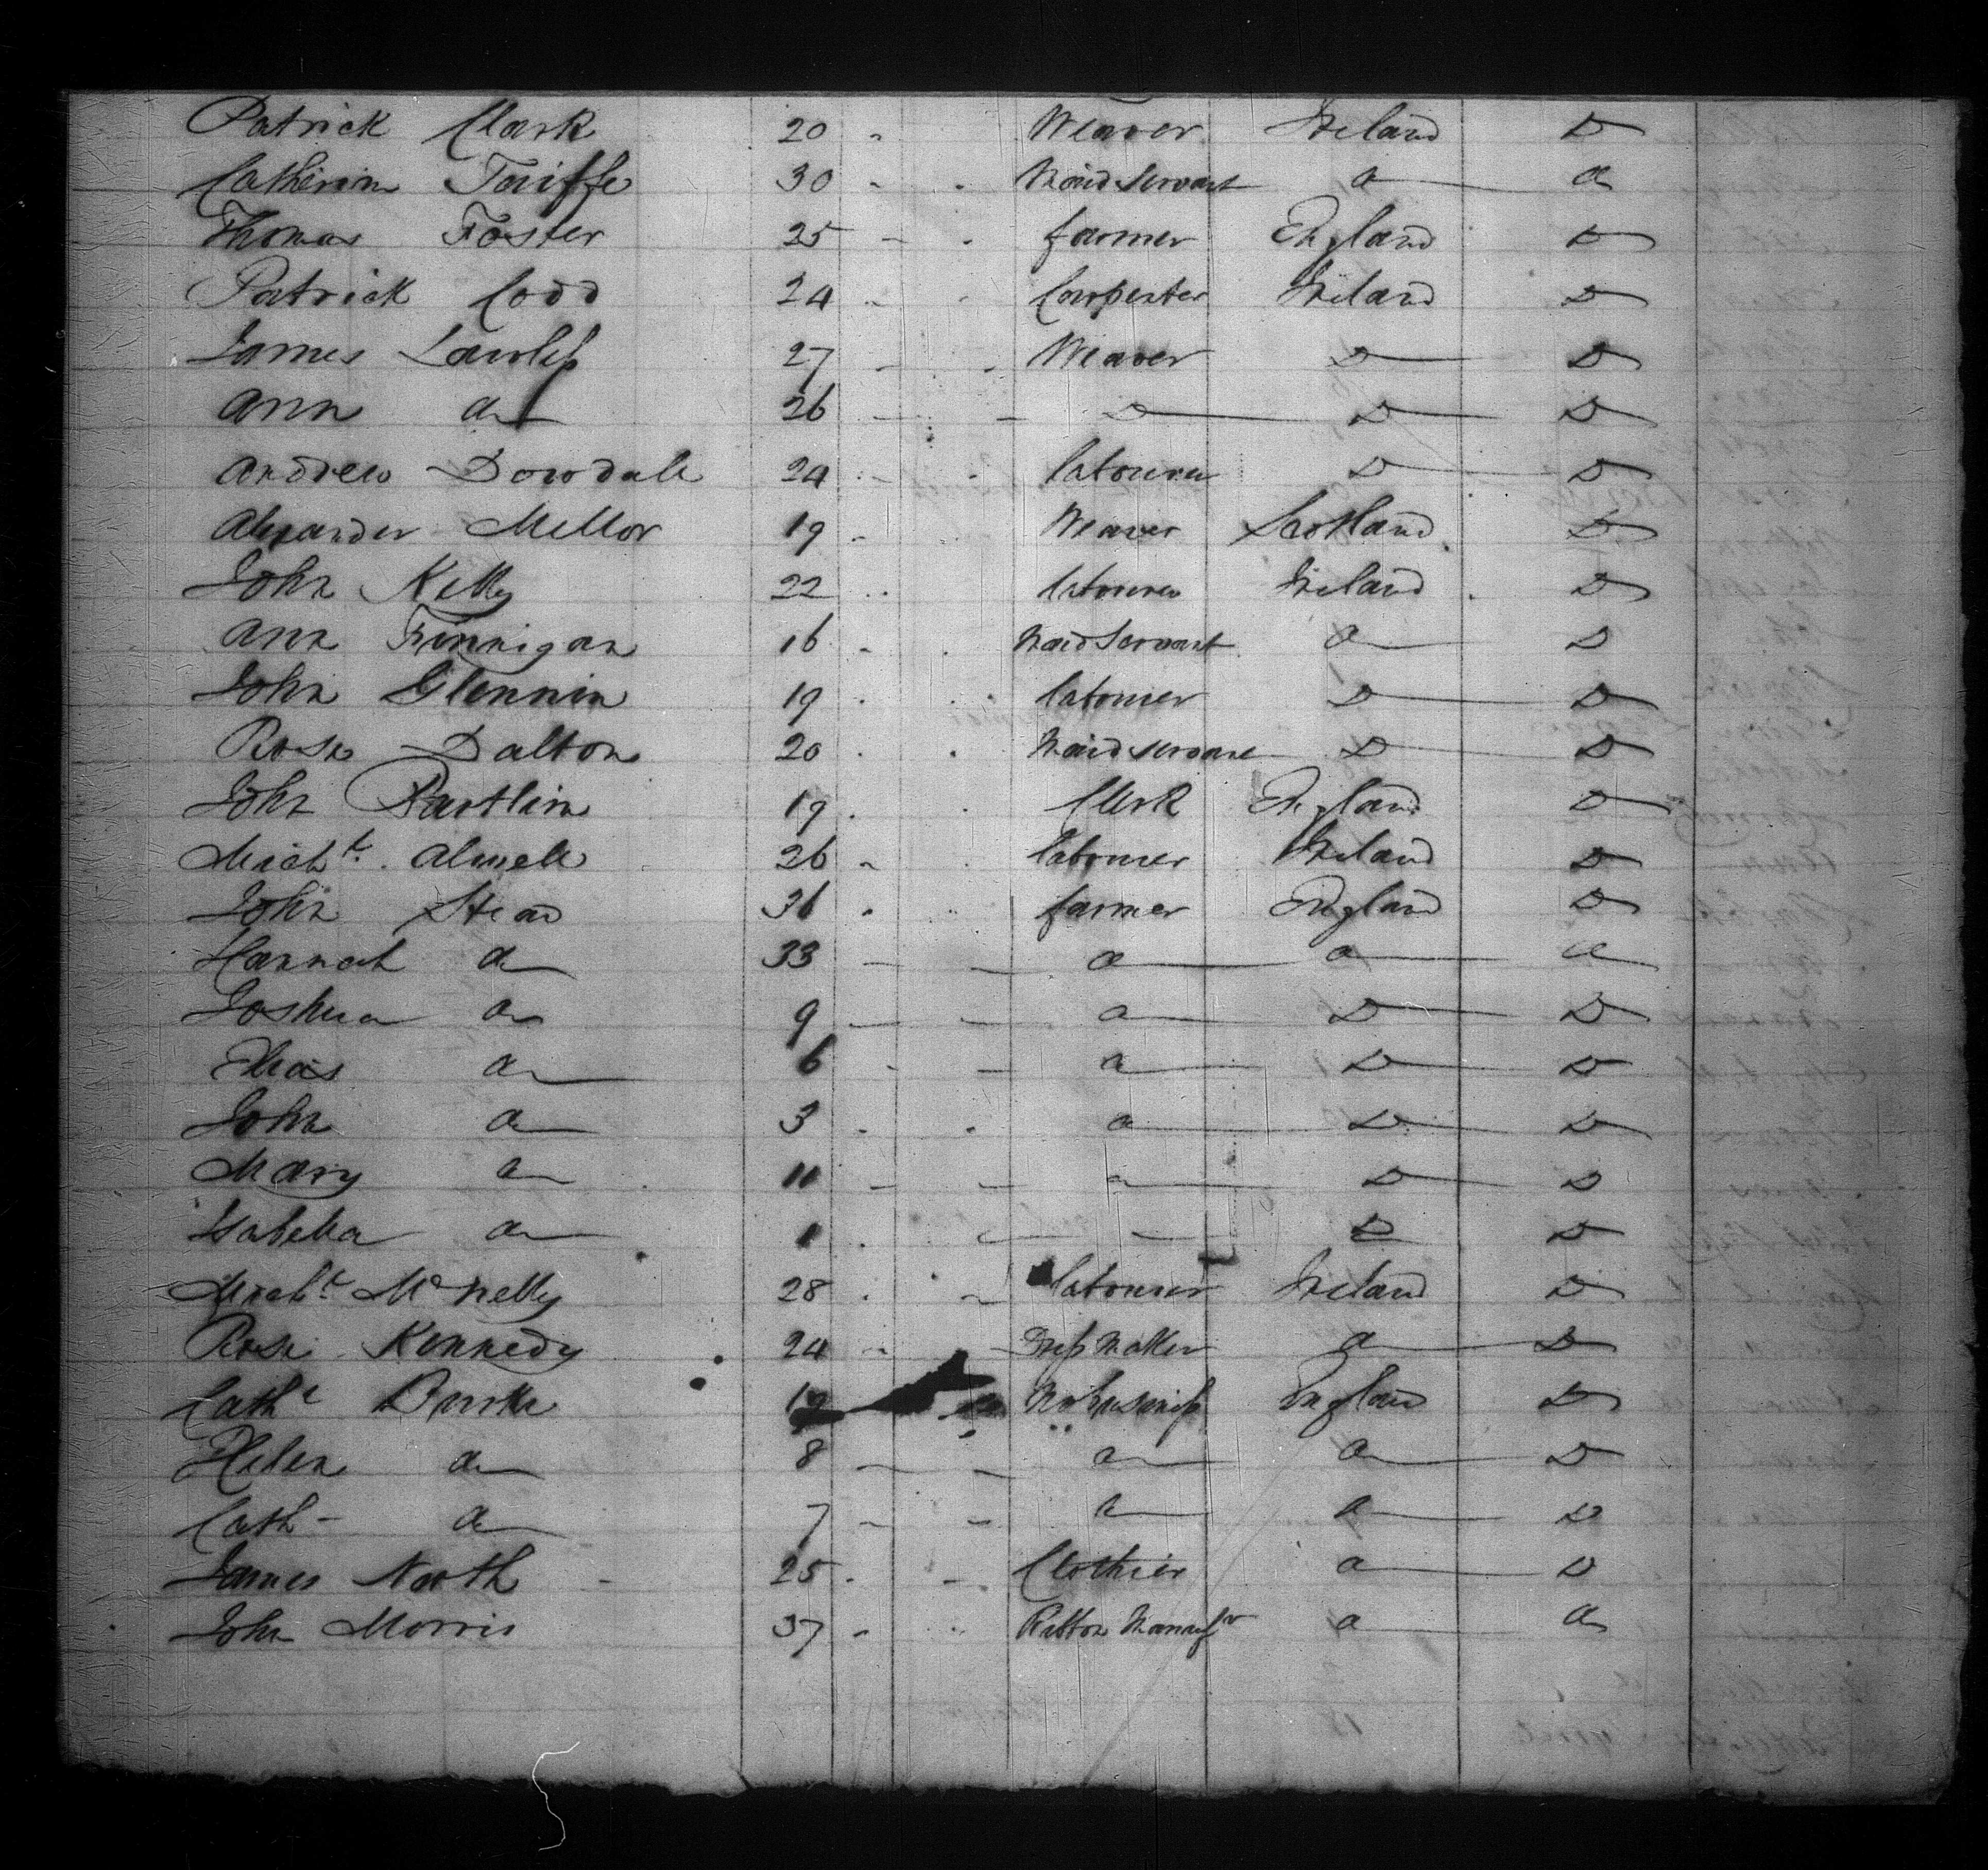 Patrick Clark 20 - Weaver Ireland D
Catherine Taiffe 30 - - Maid Servant a a
Thomas Foster 25 - - farmer England D
Patrick Codd 24 - - Carpenter Ireland D
James Lawless 27 - - Weaver D D
Ann a 26 - - D D D
Andrew Dowdale 24 - - labourer D D
Alexander Mellor 19 - Weaver Scotland D
John Kelly 22 - labourer Ireland D
Ann Finnigan 16 - - Maid Servant a D
John Glennin 19 - - labourer D D
Rose Dalton 20 - - Maid Servant D D
John 19 - - Clerk England D
Michl. 26 - - labourer Ireland D
John Stead 36 - - farmer England D
Hannah a 33 - - a a a
Joshua a 9 - - a D D
a 6 - - a D D
John a 3 - - a D D
Mary a 11 - - a D D
Isabella a 1 - - - D D
Michl. McNelly 28 - - labourer Ireland D
Rose Kennedy 24 - - Dress Maker a D
Cathe Burke England D
Helen a 8 - - a a D
Cath - a 7 - - a a D
James North 25 - - Clothier a D
John Morris 37 - - Ribbon Manufr a a